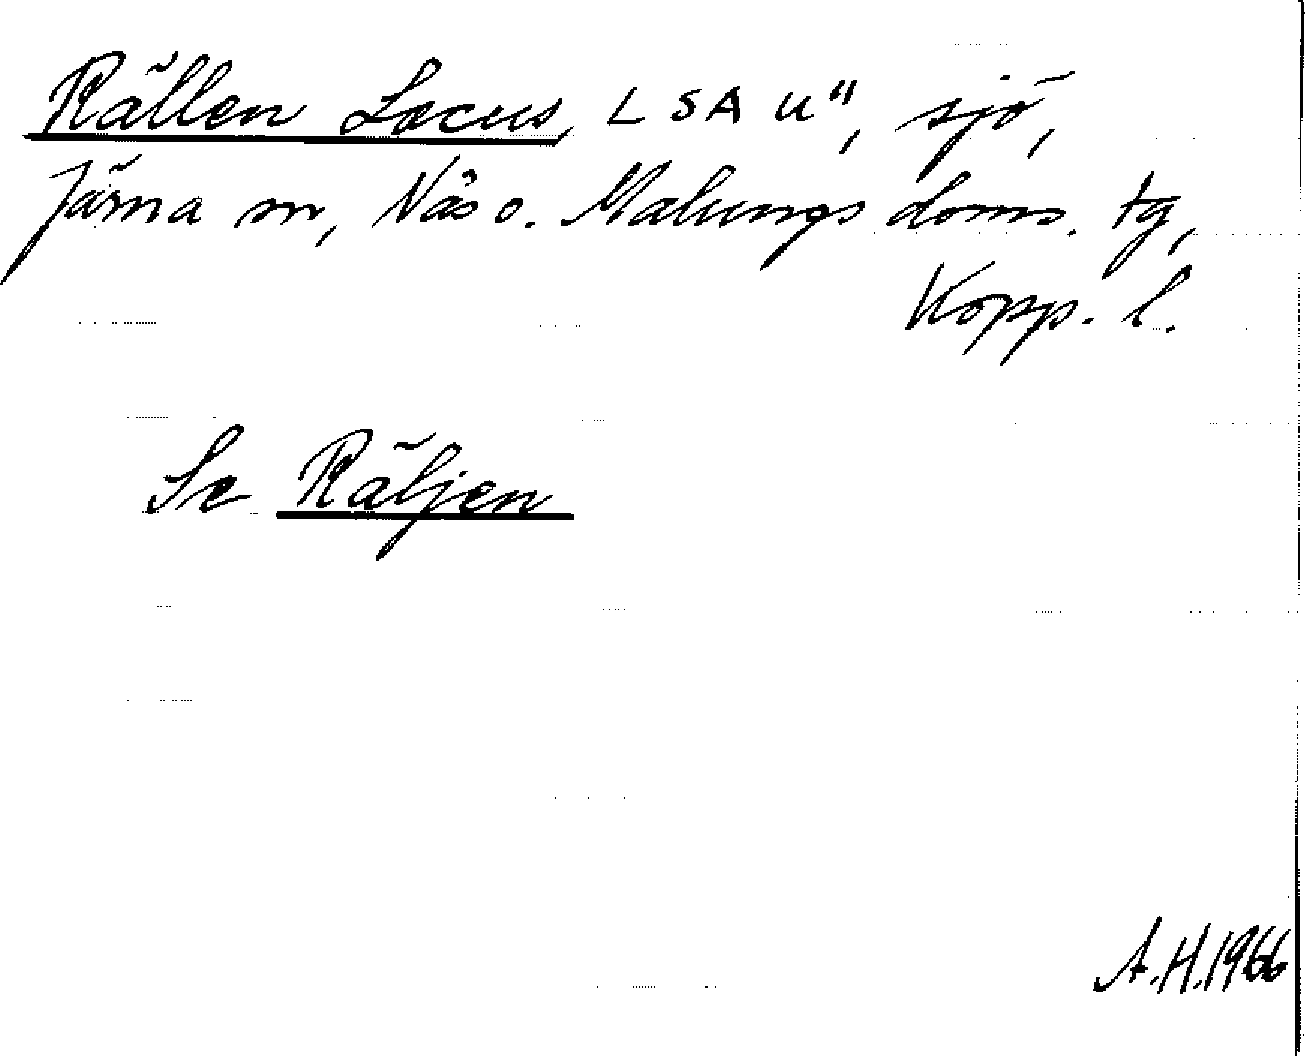 Rällen Lacus, L S A u", sjö,
Järna sn, Nås o. Malungs doms. tg,
Kopp. l.
Se Räljen
A.H.1966